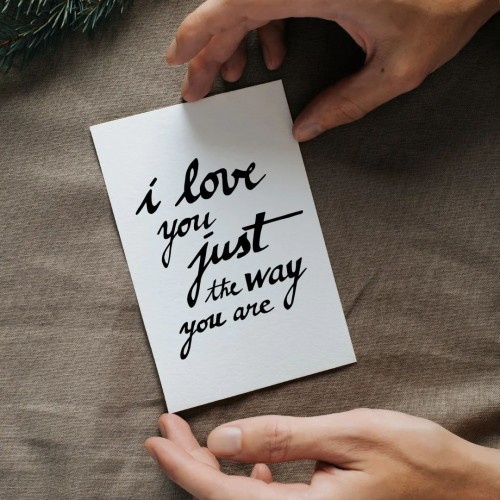 i love
you
just
the way
you are